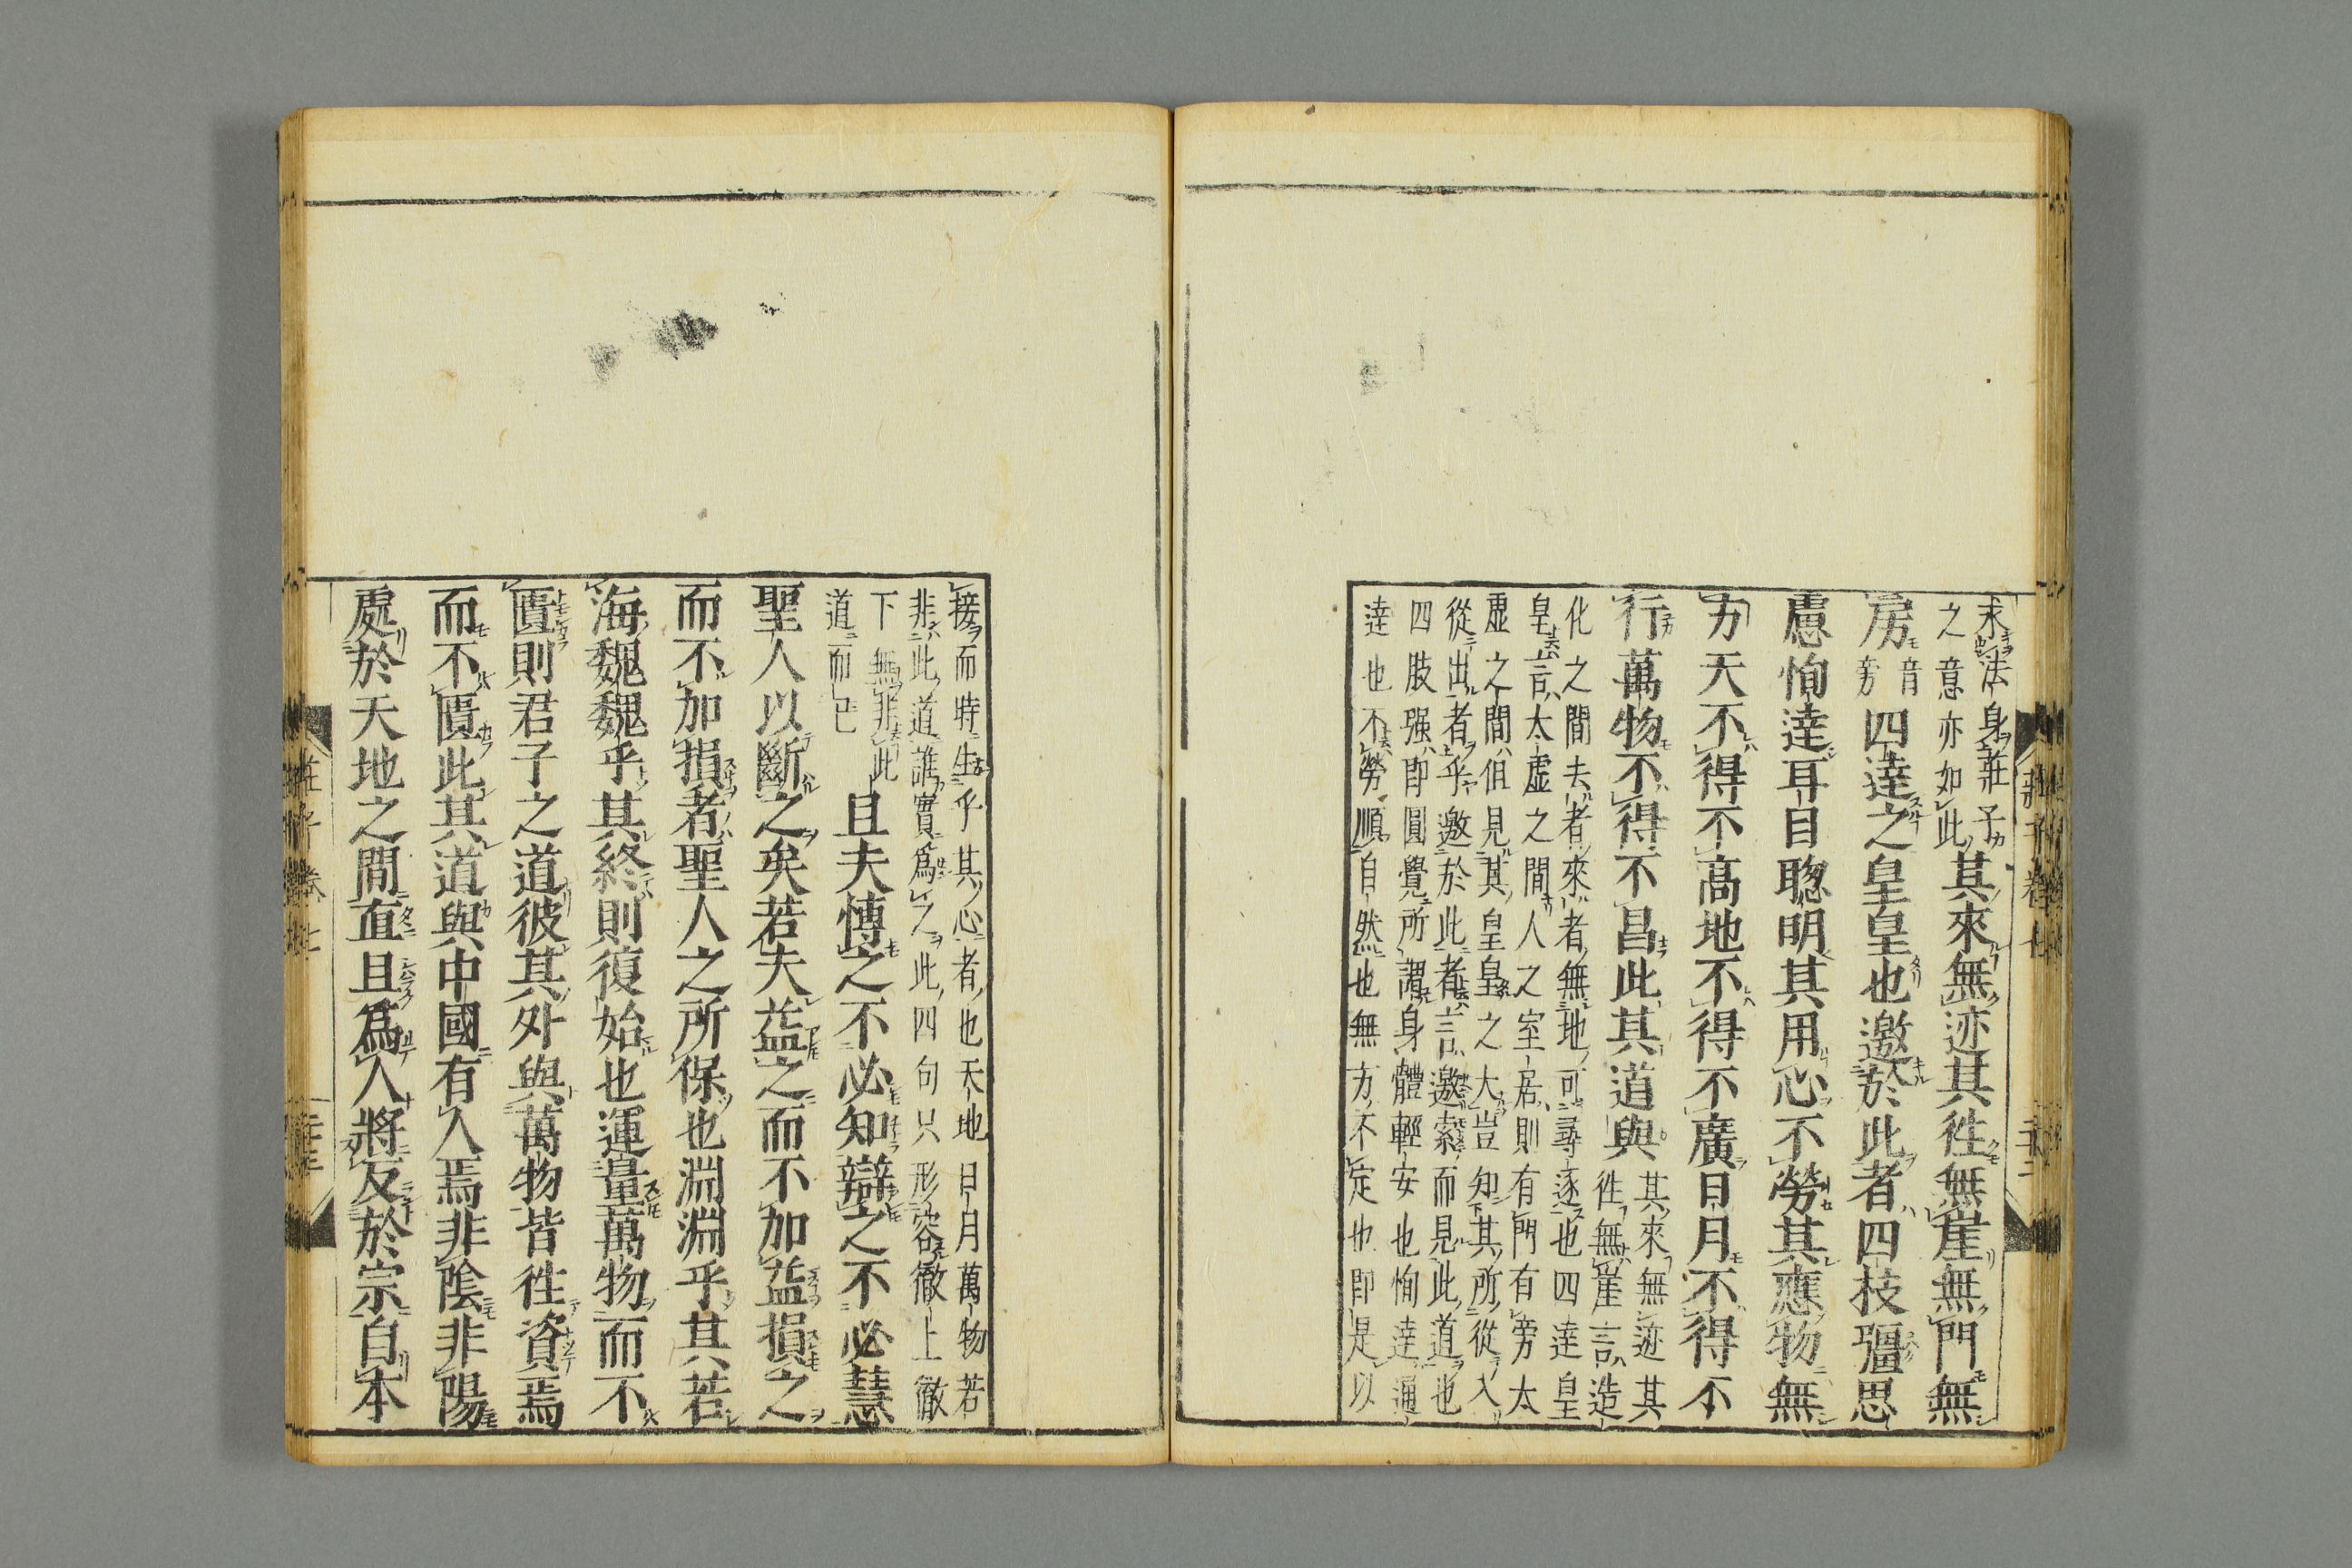 求法身莊子
之意亦如此
其來無迹其徃無崖無門無
房
音
旁
四達之皇皇也邀於此者四枝彊思
慮恂達耳目聰明其用心不勞其應物無
方天不得不高地不得不廣日月不得不
行萬物不得不昌此其道與
其來無迹其
徃無崖言造
化之間去者來者無地可尋逐也四達皇
皇言太虛之間人之室居則有門有旁太
虛之間但見其皇皇之大豈知其所從入
從出者乎邀於此者言邀索而見此道也
四肢强即圓覺所謂身體輕安也恂達通
達也不勞順自然也無方不定也即是以
莊子卷七
接而時生乎其心者也天地日月萬物若
非此道誰實爲之此四句只形容徹上徹
下無非此
道而已
且夫博之不必知辯之不必慧
聖人以斷之矣若夫益之而不加益損之
而不加損者聖人之所保也淵淵乎其若
海魏魏乎其終則復始也運量萬物而不
匱則君子之道彼其外與萬物皆徃資焉
而不匱此其道與中國有人焉非陰非陽
處於天地之間直且爲人將反於宗自本
莊子卷七